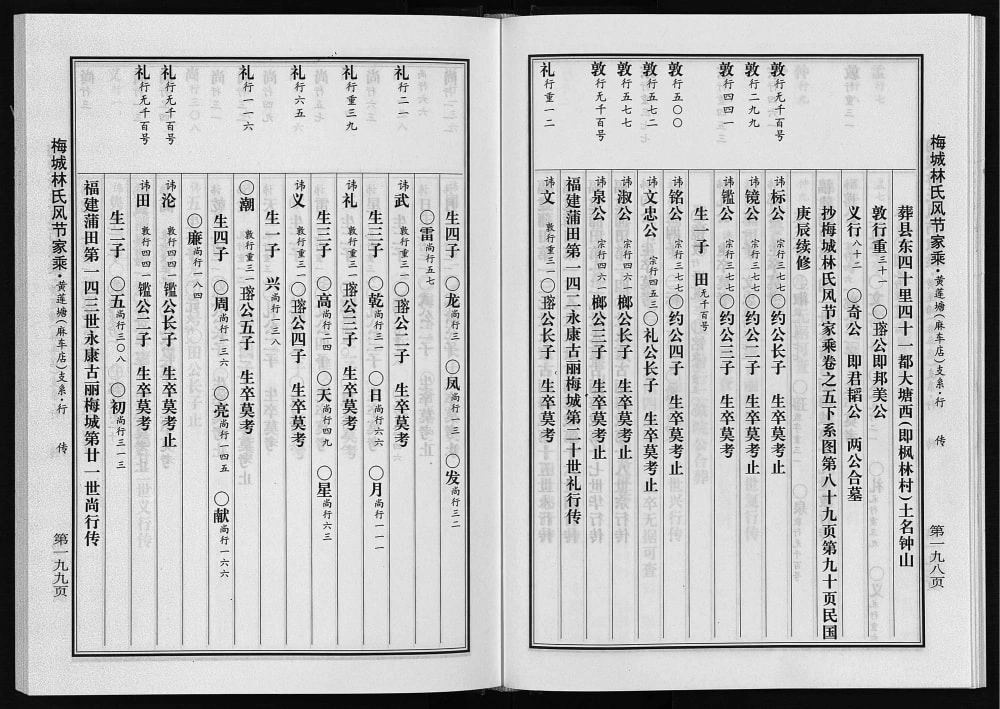 梅城林氏风节家乘·黄莲塘(麻车店)支系·行 传
第一九八页
葬县东四十里四十一都大塘西(即枫林村)土名钟山
敦行重三十一 〇瑹公即邦美公
义行八十二 〇奇公 即君韬公 两公合墓
抄梅城林氏风节家乘卷之五下系图第八十九页第九十页民国
庚辰续修
敦行无千百号 讳标公 宗行三七七〇约公长子 生卒莫考止
敦行二九九 讳镜公 宗行三七七〇约公二子 生卒莫考止
敦行四四一 讳鑑公 宗行三七七〇约公三子 生卒莫考
生一子 田无千百号
敦行五〇〇 讳铭公 宗行三七七〇约公四子 生卒莫考止
敦行五七二 讳文忠公 宗行四五三〇礼公长子 生卒莫考止
敦行五七七 讳淑公 宗行四六一榔公长子 生卒莫考止
敦行无千百号 讳泉公 宗行四六一榔公三子 生卒莫考止
福建莆田第一四二永康古丽梅城第二十世礼行传
礼行重一二 讳文 敦行重三一〇瑹公长子 生卒莫考
生四子 〇龙尚行三 〇凤尚行一三 〇发尚行三二
〇雷尚行五七
礼行二一八 讳武 敦行重三一〇瑹公二子 生卒莫考
生三子 〇乾尚行三一 〇日尚行六六 〇月尚行一一一
礼行重三九 讳礼 敦行重三一瑹公三子 生卒莫考
生三子 〇高尚行四一 〇天尚行四九 〇星尚行六三
礼行六五 讳义 敦行重三一〇瑹公四子 生卒莫考
生一子 兴尚行一三八
礼行一一六 〇潮 敦行重三一瑹公五子 生卒莫考
生四子 〇周尚行一三六 〇亮尚行一四五 〇献尚行一六六
〇廉尚行一八四
礼行无千百号 讳沦 敦行四四一鑑公长子 生卒莫考止
礼行无千百号 讳田 敦行四四一鑑公二子 生卒莫考
生二子 〇五尚行三〇八 〇初尚行三一三
福建莆田第一四三世永康古丽梅城第廿一世尚行传
梅城林氏风节家乘·黄莲塘(麻车店)支系·行 传
第一九九页